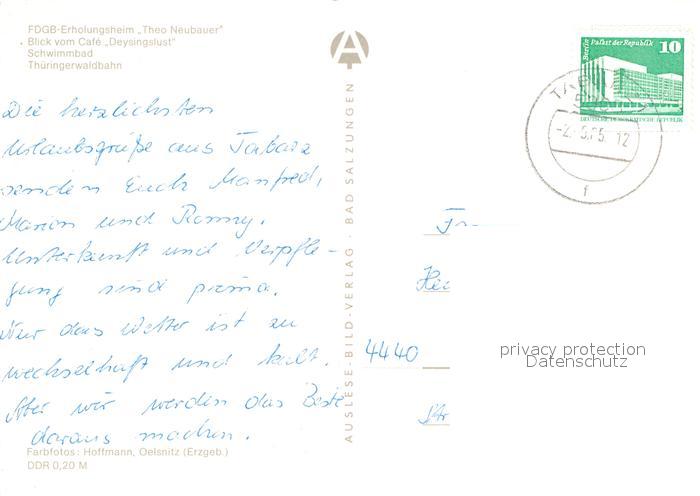 FDGB-Erholungsheim „Theo Neubauer"
Blick vom Café „Deysingslust"
Schwimmbad
Thüringerwaldbahn
Die herzlichsten
Urlaubsgrüße aus Tabarz
senden Euch Manfred,
Marion und Ronny.
Unterkunft und Verpfle-
gung sind prima.
Nur das Wetter ist zu
wechselhaft und kalt.
Aber wir werden das Beste
daraus machen.
Farbfotos: Hoffmann, Oelsnitz (Erzgeb.)
DDR 0,20 M
AUSLESE-BILD-VERLAG · BAD SALZUNGEN
Berlin Palast der Republik 10
DEUTSCHE DEMOKRATISCHE REPUBLIK
12
f
4440
privacy protection
Datenschutz